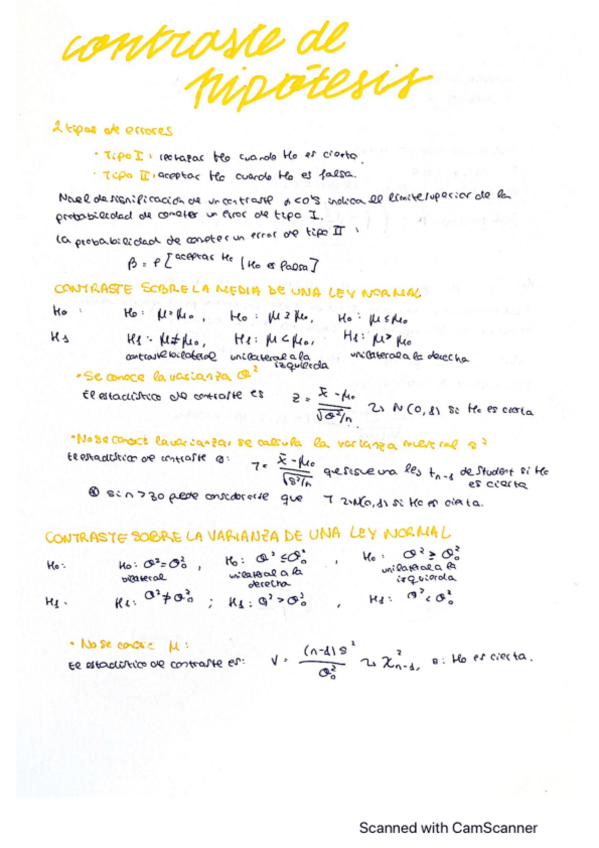 contraste de
hipótesis
2 tipos de errores
· Tipo I: rechazar H₀ cuando H₀ es cierta.
· Tipo II: aceptar H₀ cuando H₀ es falsa.
Nivel de significación de un contraste α<0's indica el límite superior de la
probabilidad de cometer un error de tipo I.
La probabilidad de cometer un error de tipo II:
β = P [aceptar H₀ | H₀ es falsa]
CONTRASTE SOBRE LA MEDIA DE UNA LEY NORMAL
H₀: H₀: μ=μ₀, H₀: μ≥μ₀, H₀: μ≤μ₀
H₁ H₁: μ≠μ₀, H₁: μ<μ₀, H₁: μ>μ₀
contraste bilateral unilateral a la izquierda unilateral a la derecha
· Se conoce la varianza σ²
El estadístico de contraste es z = (x̄ - μ₀)/√(σ²/n) ~ N(0,1) si H₀ es cierta
· No se conoce la varianza, se calcula la varianza muestral s²
El estadístico de contraste es: T = (x̄ - μ₀)/√(s²/n) que sigue una ley tₙ₋₁ de Student si H₀ es cierta
⊗ si n>30 puede considerarse que T ~ N(0,1) si H₀ es cierta.
CONTRASTE SOBRE LA VARIANZA DE UNA LEY NORMAL
H₀: H₀: σ²=σ₀², H₀: σ²≤σ₀², H₀: σ²≥σ₀²
bilateral unilateral a la derecha unilateral a la izquierda
H₁: H₁: σ²≠σ₀²; H₁: σ²>σ₀², H₁: σ²<σ₀²
· No se conoce μ:
El estadístico de contraste es: V = (n-1)s²/σ₀² ~ χ²ₙ₋₁, si H₀ es cierta.
Scanned with CamScanner